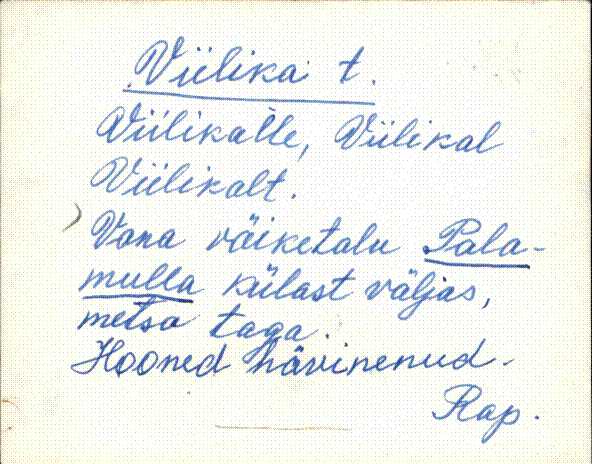 Viilika t.
Viilikalle, Viilikal
Viilikalt.
Vana väiketalu Pala-
mulla külast väljas,
metsa taga.
Hooned hävinenud.
Rap.